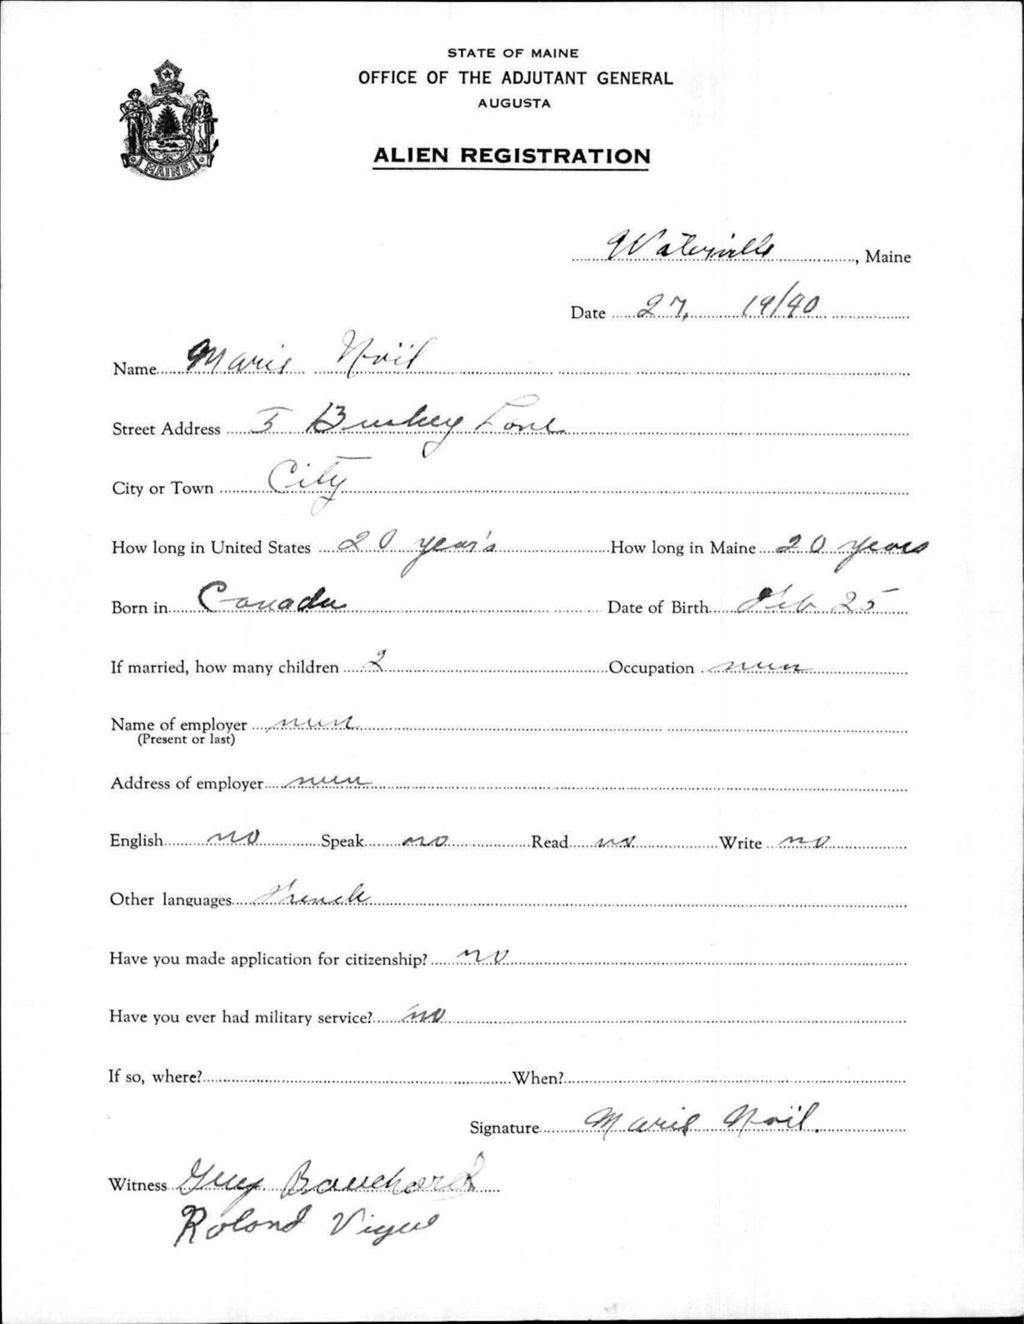 STATE OF MAINE
OFFICE OF THE ADJUTANT GENERAL
AUGUSTA
ALIEN REGISTRATION
MAINE
Waterville, Maine
Date 27, 19/40
Name Marie Noël
Street Address 5 Bushey Lane
City or Town City
How long in United States 20 year's How long in Maine 20 years
Born in Canada Date of Birth Feb 25
If married, how many children 2 Occupation nun
Name of employer nun
(Present or last)
Address of employer nun
English no Speak no Read no Write no
Other languages French
Have you made application for citizenship? no
Have you ever had military service? no
If so, where? When?
Signature Marie Noël.
Witness Guy Bouchard
Roland Vigue